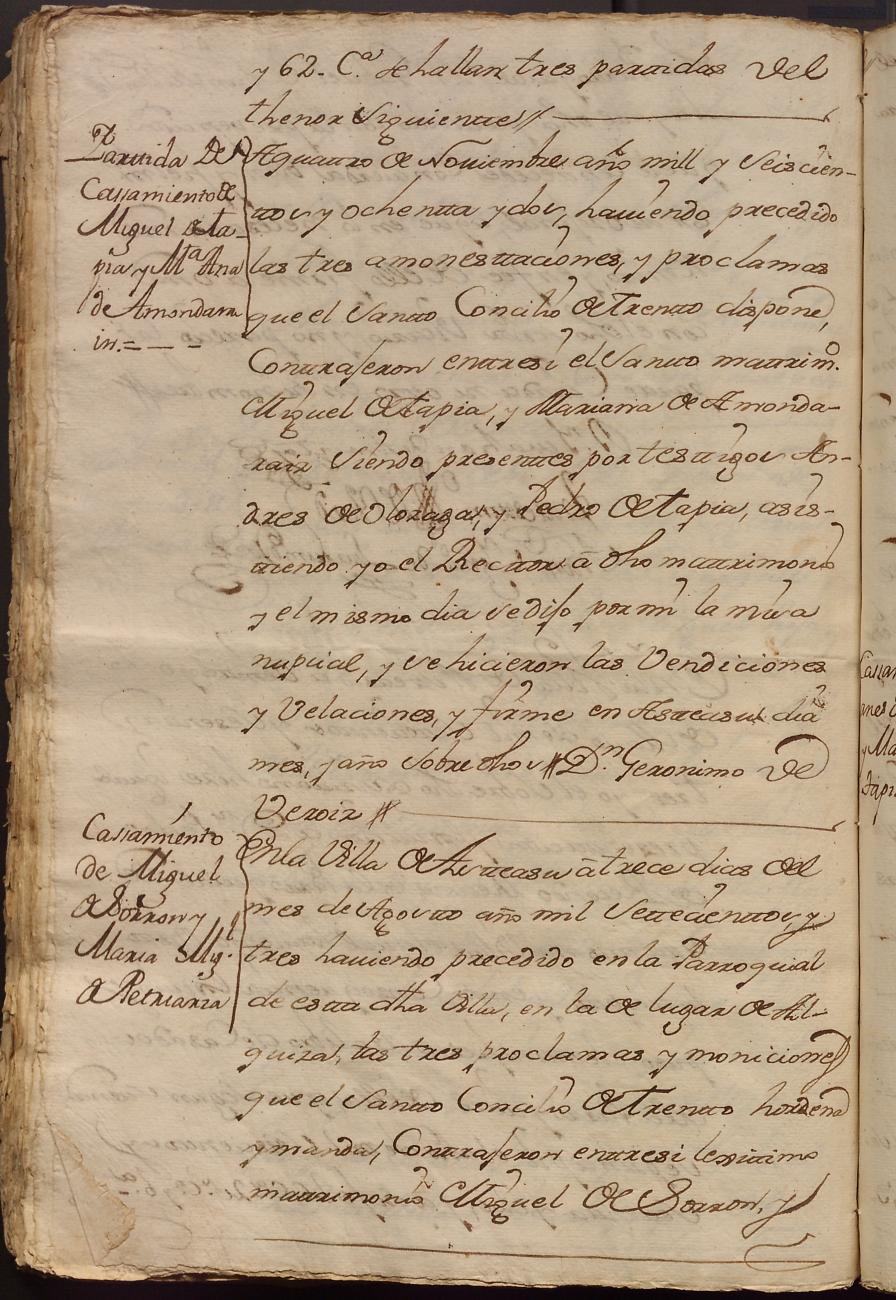 y 62. Cª. se hallan tres partidas del
thenor siguiente//
Partida De
Cassamiento de
Miguel de Ta-
pia y Mª Ana
de Amondara
in.= — =
A quattro de Noviembre año mill y Seiscien-
ttos y ochentta y dos, haviendo precedido
las tres amonesttaciones, y proclamas
que el Santto Concilio de Trentto dispone,
Conttrajeron enttre si el Santto mattrimº.
Miguel de tapia, y Mariana de Amonda-
rain siendo presenttes por testtigos An-
dres de Olozaga, y Pedro de tapia, asis-
ttiendo yo el Recttor â dho mattrimonio
y el mismo dia se dijo por mi la misa
nupcial, y se hicieron las Vendiciones
y Velaciones, y firme en Asteasu dia
mes, y año sobre dhos // Dn. Geronimo de
Veroiz //
Cassamiento
de Miguel
de Sorron y
Maria Mig.l
de Petriarza
En la Villa de Asteasu â trece dias del
mes de Agostto año mil Settecienttos, y
tres haviendo precedido en la Parroquial
de estta dha Villa, en la de lugar de Al-
quiza, las tres proclamas y moniciones
que el Santto Concilio de Trentto hordena
y manda, Conttrajeron enttre si lexittimo
mattrimonio Miguel de Sorron, y